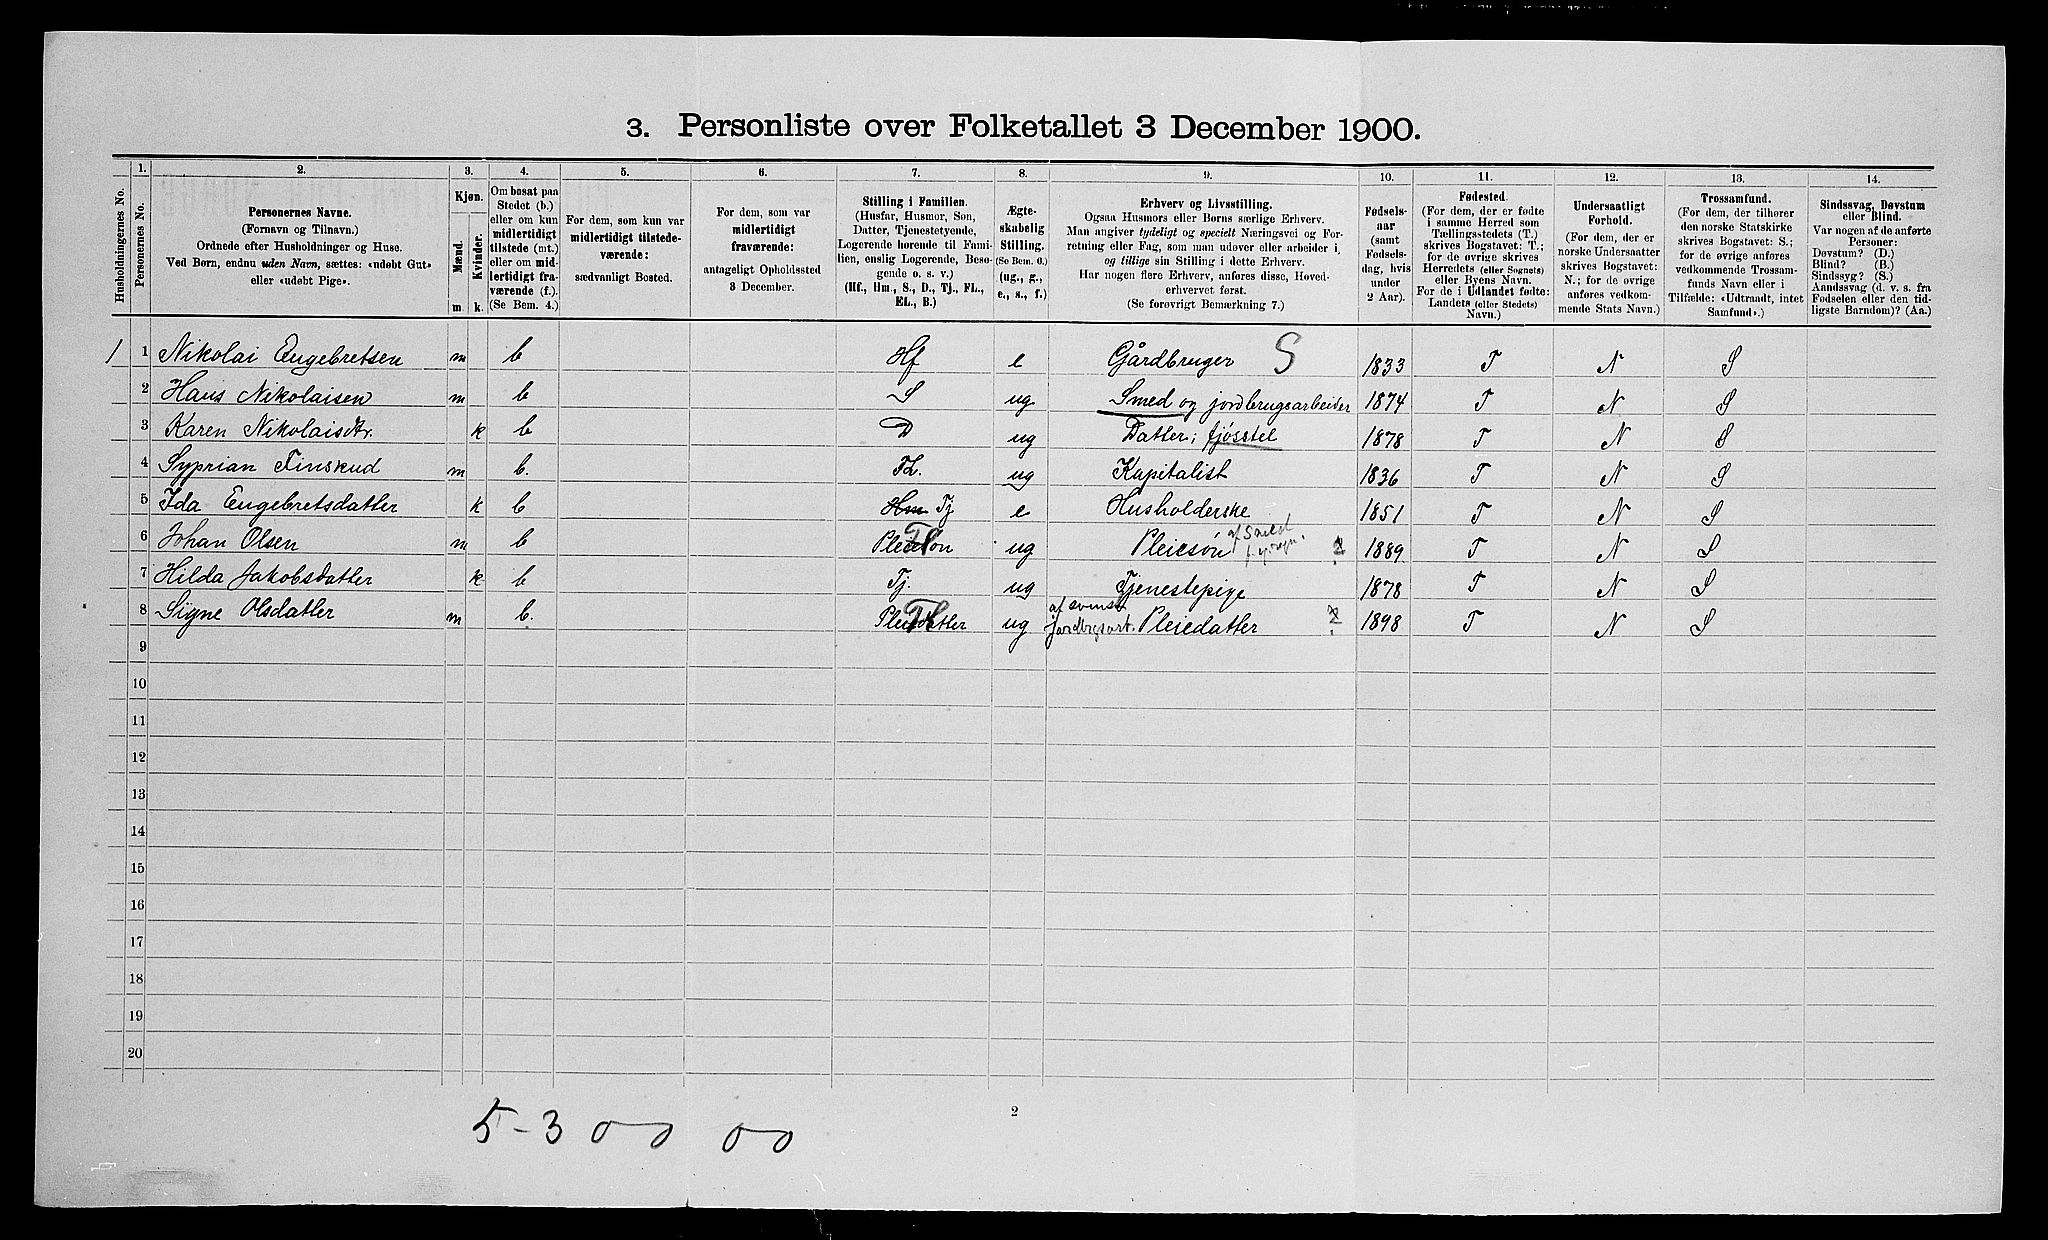 3. Personliste over Folketallet 3 December 1900.
Husholdningernes No.
1.
Personernes No.
2.
Personernes Navne.
(Fornavn og Tilnavn.)
Ordnede efter Husholdninger og Huse.
Ved Børn, endnu uden Navn, sættes: «udøbt Gut»
eller «udøbt Pige».
3.
Kjøn.
Mænd.
Kvinder.
m.
k.
4.
Om bosat paa
Stedet (b.)
eller om kun
midlertidigt
tilstede (mt.)
eller om mid-
lertidigt fra-
værende (f.).
(Se Bem. 4.)
5.
For dem, som kun var
midlertidigt tilstede-
værende:
sædvanligt Bosted.
6.
For dem, som var
midlertidigt
fraværende:
antageligt Opholdssted
3 December.
7.
Stilling i Familien.
(Husfar, Husmor, Søn,
Datter, Tjenestetyende,
Logerende hørende til Fami-
lien, enslig Logerende, Besø-
gende o. s. v.)
(Hf., Hm., S., D., Tj., FL.,
EL., B.)
8.
Ægte-
skabelig
Stilling.
(Se Bem. 6.)
(ug., g.,
e., s., f.)
9.
Erhverv og Livsstilling.
Ogsaa Husmors eller Børns særlige Erhverv.
Man angiver tydeligt og specielt Næringsvei og For-
retning eller Fag, som man udøver eller arbeider i,
og tillige sin Stilling i dette Erhverv.
Har nogen flere Erhverv, anføres disse, Hoved-
erhvervet først.
(Se forøvrigt Bemærkning 7.)
10.
Fødsels-
aar
(samt
Fødsels-
dag, hvis
under
2 Aar).
11.
Fødested.
(For dem, der er fødte
i samme Herred som
Tællingsstedets (T.)
skrives Bogstavet: T.;
for de øvrige skrives
Herredets (eller Sognets)
eller Byens Navn.
For de i Udlandet fødte:
Landets (eller Stedets)
Navn.)
12.
Undersaatligt
Forhold.
(For dem, der er
norske Undersaatter
skrives Bogstavet:
N.; for de øvrige
anføres vedkom-
mende Stats Navn.)
13.
Trossamfund.
(For dem, der tilhører
den norske Statskirke
skrives Bogstavet: S.;
for de øvrige anføres
vedkommende Trossam-
funds Navn eller i
Tilfælde: «Udtraadt, intet
Samfund».)
14.
Sindssvag, Døvstum
eller Blind.
Var nogen af de anførte
Personer:
Døvstum? (D.)
Blind? (B.)
Sindssyg? (S.)
Aandssvag (d. v. s. fra
Fødselen eller den tid-
ligste Barndom)? (Aa.)
1 1 Nikolai Engebretsen m b Hf e Gårdbruger S 1833 T N S
2 Hans Nikolaisen m b S ug Smed og jordbrugsarbeider 1874 T N S
3 Karen Nikolaisdtr. k b D ug Datter; fjøsstel 1878 T N S
4 Syprian Finskud m b. FL. ug Kapitalist 1836 T N S
5 Ida Engebretsdatter k b Hm Tj e Husholderske 1851 T N S
6 Johan Olsen m b Pleiesøn ug Pleiesøn af 1889 T N S
7 Hilda Jakobsdatter k b Tj. ug Tjenestepige 1878 T N S
8 Signe Olsdatter m b. Pleiedatter ug af svensk jordbrgsarb. Pleiedatter 1898 T N S
9
10
11
12
13
14
15
16
17
18
19
20
5-3 00 00
2